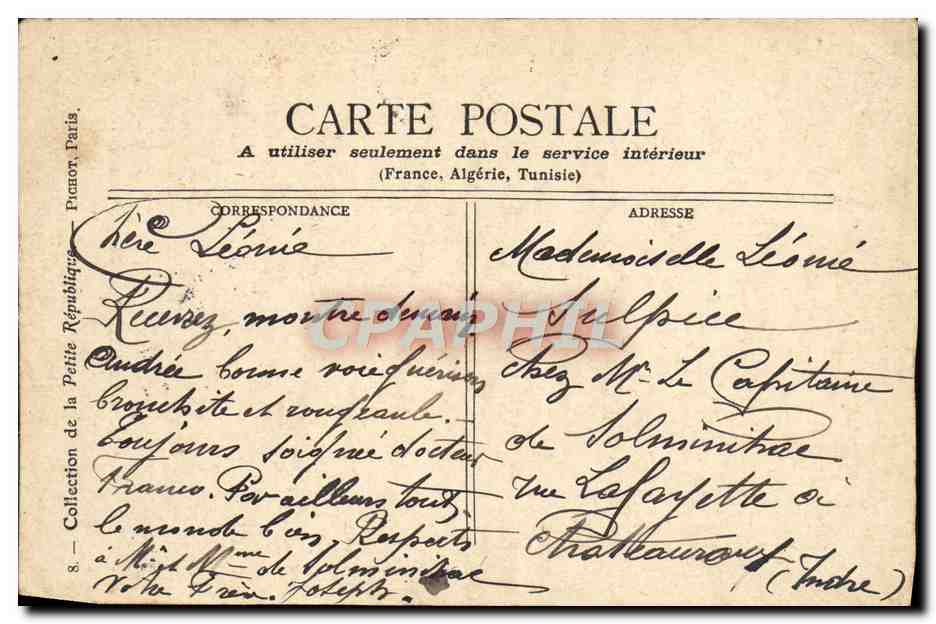 CARTE POSTALE
A utiliser seulement dans le service intérieur
(France, Algérie, Tunisie)
CORRESPONDANCE
Chère Léonie
Recevrez, montre demain
Andrée bonne voie guérison
bronchite et rougeaule.
Toujours soignée docteur
Franco. Par ailleurs tout
le monde bien. Respects
à Mr et Mme de Solminihac
Votre Frère. Joseph.
ADRESSE
Mademoiselle Léonie
Sulpice
Chez Mr Le Capitaine
de Solminihac
rue Lafayette à
Chateauroux
(Indre)
8. — Collection de la Petite République — PICHOT, Paris.
CPAPHIL